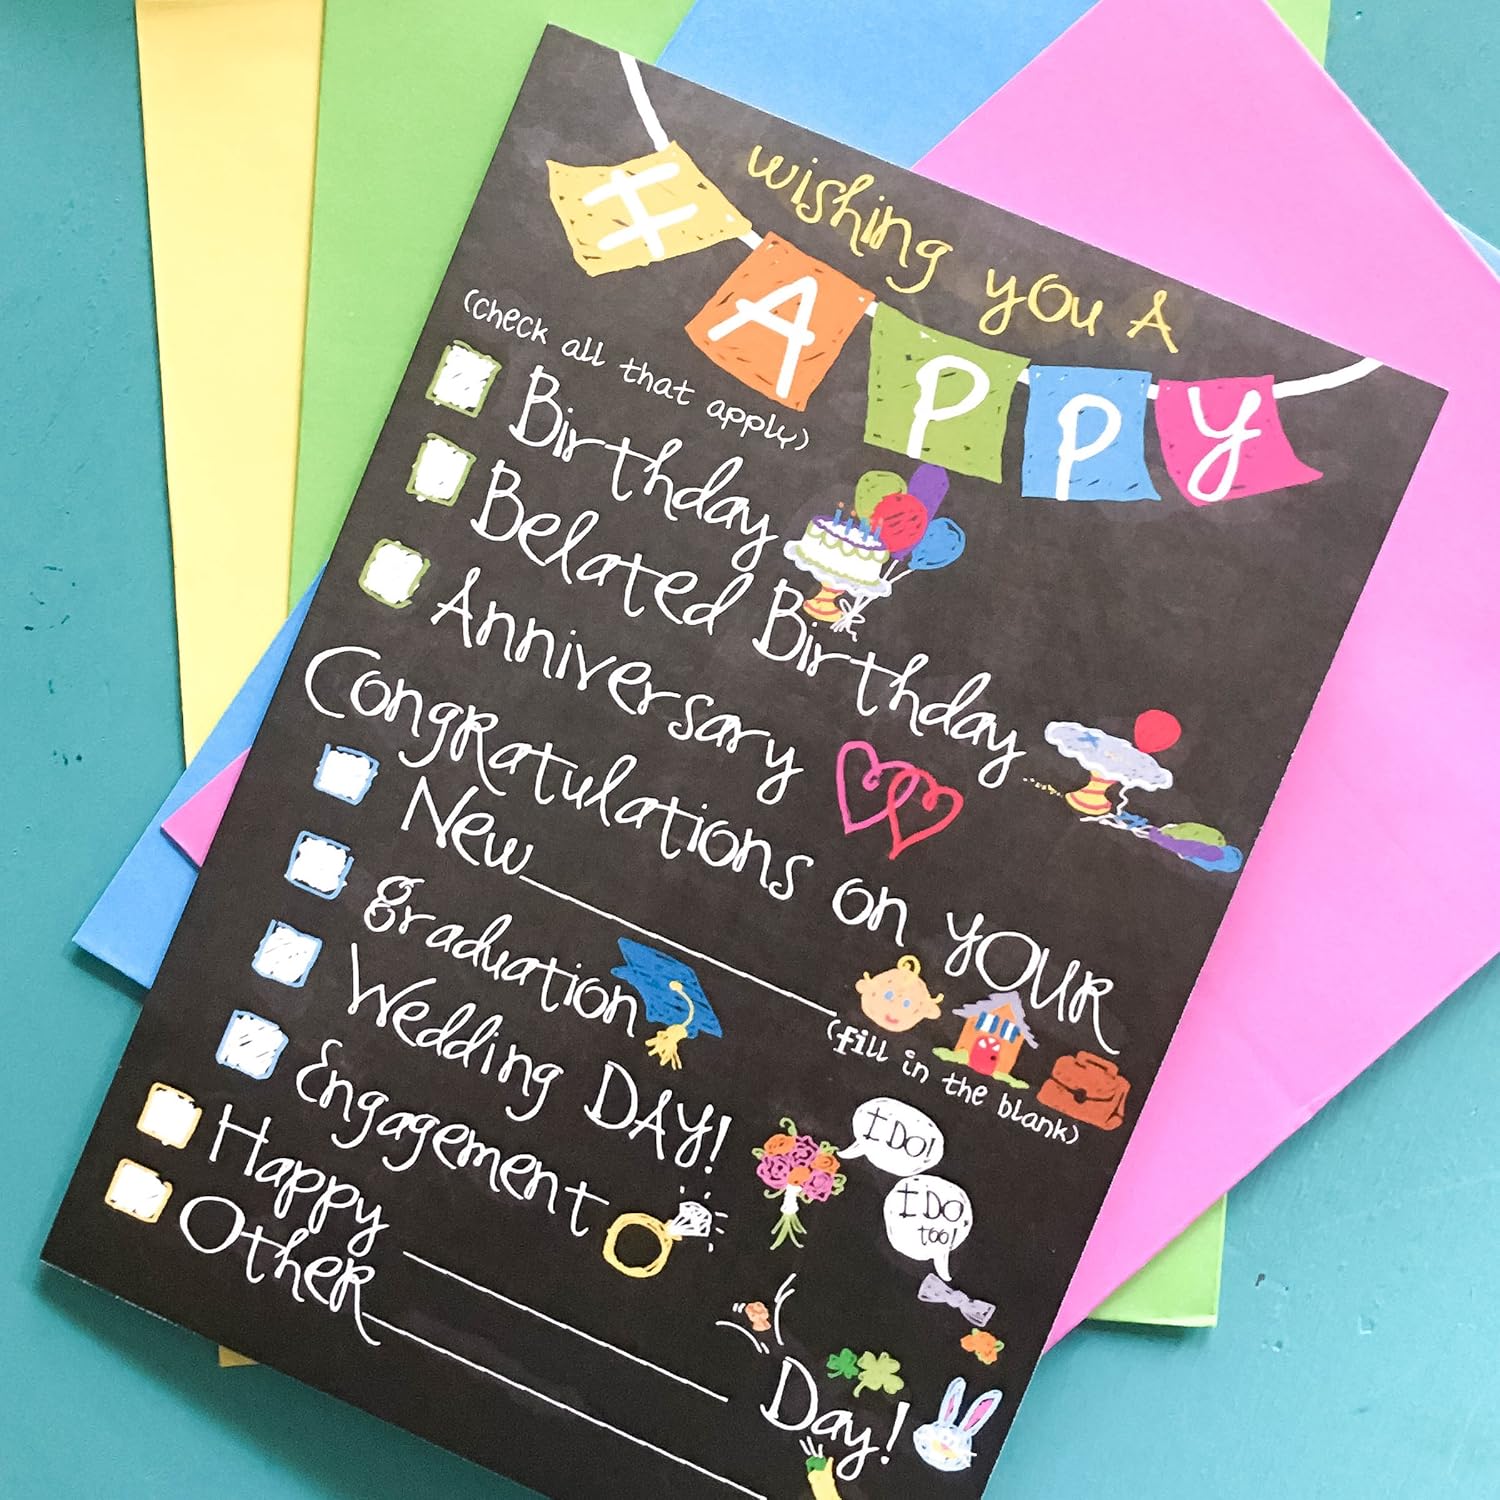 wishing you A
HAPPY
(check all that apply)
Birthday
Belated Birthday
Anniversary
Congratulations on YOUR
New
(fill in the blank)
graduation
Wedding DAY!
I DO!
I DO
too!
Engagement
Happy
Day!
Other